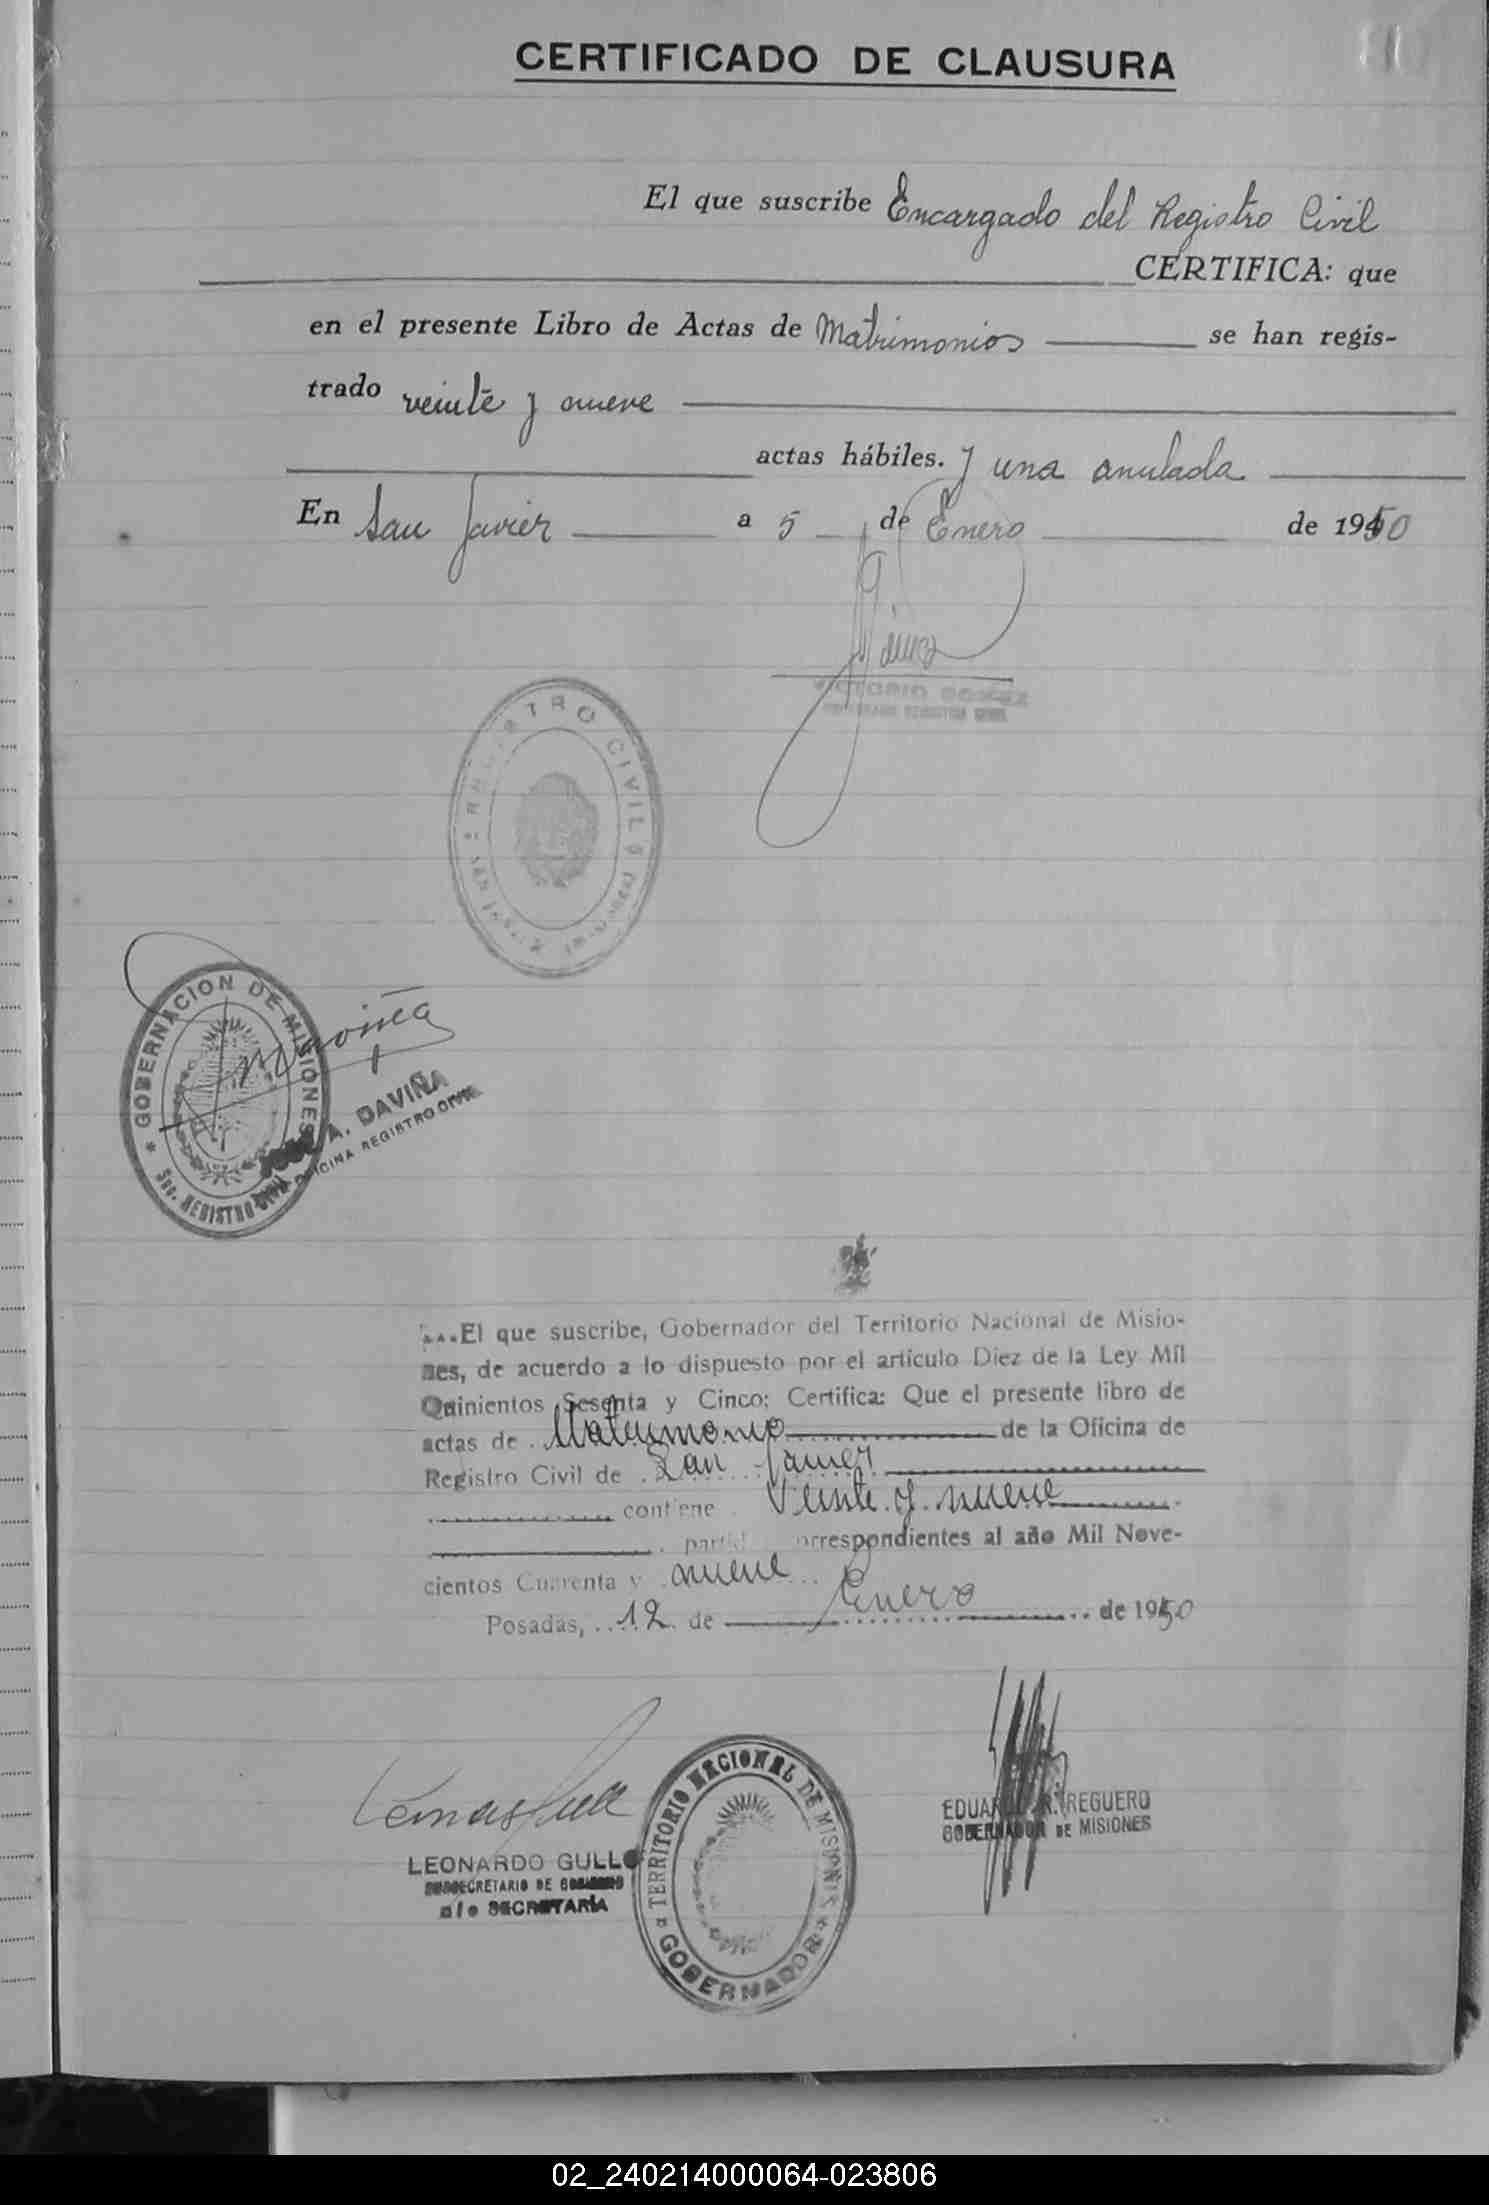 CERTIFICADO DE CLAUSURA
El que suscribe Encargado del Registro Civil
CERTIFICA: que
en el presente Libro de Actas de Matrimonios se han regis-
trado veinte y nueve
actas hábiles. y una anulada
En San Javier a 5 de Enero de 1950
VICTORIO GOMEZ
ENCARGADO REGISTRO CIVIL
REGISTRO CIVIL
SAN JAVIER
GOBERNACION DE MISIONES
Sec. REGISTRO CIVIL
JOSE A. DAVIÑA
OFICINA REGISTRO CIVIL
El que suscribe, Gobernador del Territorio Nacional de Misio-
nes, de acuerdo a lo dispuesto por el artículo Diez de la Ley Mil
Quinientos Sesenta y Cinco; Certifica: Que el presente libro de
actas de Matrimonio de la Oficina de
Registro Civil de San Javier
contiene Veinte y nueve
partidas correspondientes al año Mil Nove-
cientos Cuarenta y nueve
Posadas, 12 de Enero de 1950
LEONARDO GULLO
SUBSECRETARIO DE GOBIERNO
a/c SECRETARÍA
TERRITORIO NACIONAL DE MISIONES
GOBERNADOR
EDUARDO R. REGUERO
GOBERNADOR DE MISIONES
02_240214000064-023806